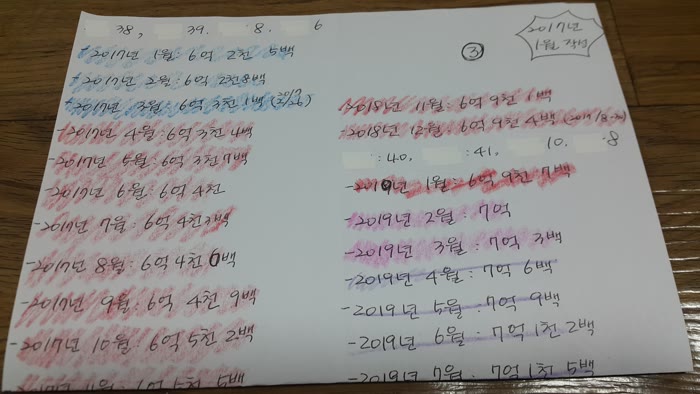 38, 39. 8. 6
+ 2017년 1월 6억 2천 5백
+ 2017년 2월 : 6억 2천8백
+ 2017년 3월 6억 3천 1백
- 2017년 4월 : 6억 3천 4백
- 2017년 5월 : 6억 3천7백
- 2017년 6월 : 6억 4천
- 2017년 7월 : 6억 4천3백
- 2017년 8월 : 6억 4천 6백
- 2017년 9월 : 6억 4천 9백
- 2017년 10월 : 6억 5천 2백
2017년 11월 : 6억 5천 5백
2017년
1월 작성
③
- 2018년 11월 : 6억 9천 1백
- 2018년 12월 : 6억 9천 4백
:40, :41, 10. 8
- 2019년 1월 : 6억 9천 7백
- 2019년 2월 : 7억
- 2019년 3월 : 7억 3백
- 2019년 4월 : 7억 6백
- 2019년 5월 : 7억 9백
- 2019년 6월 : 7억 1천 2백
- 2019년 7월 : 7억 1천 5백